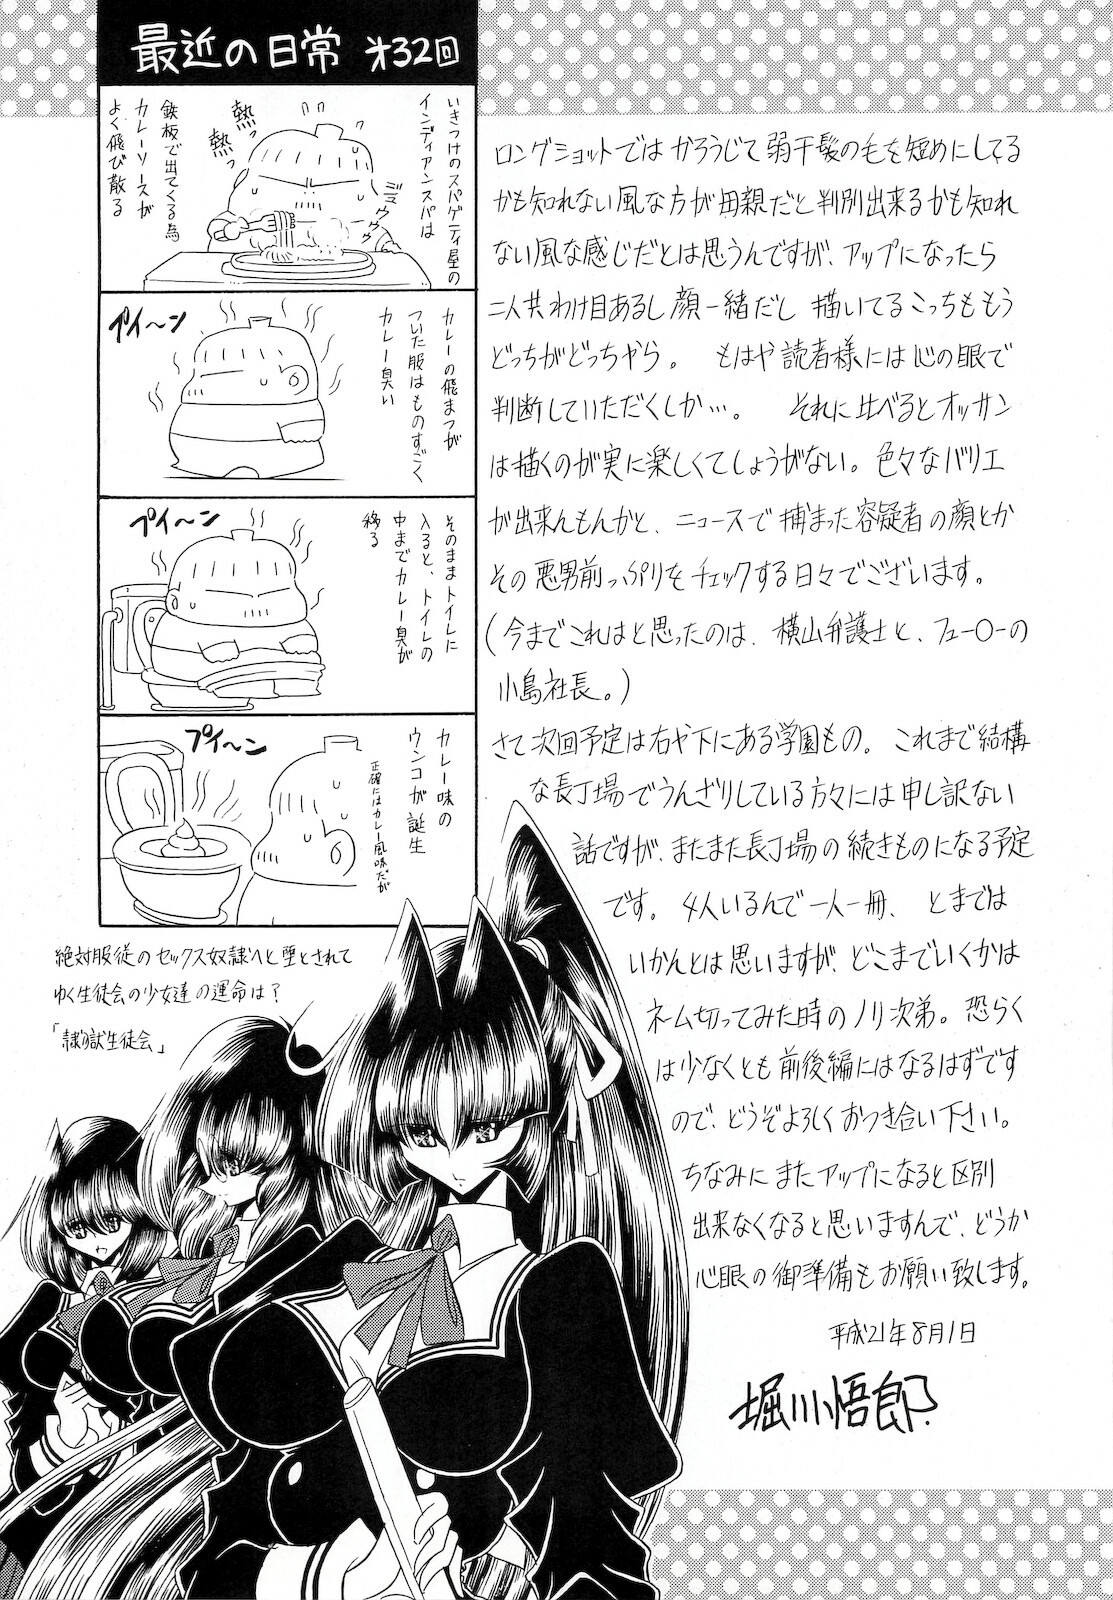 最近の日常 オ32回
いきつけのスパゲティ屋の
インディアンスパは
熱っ
熱っ
ミュウウウ
鉄板で出てくる為
カレーソースが
よく飛び散る
カレーの飛まつが
ついた服はものすごく
カレー臭い
プイ〜ン
そのままトイレに
入ると、トイレの
中までカレー臭が
移る
プイ〜ン
カレー味の
ウンコが誕生
正確にはカレー風味だが
プイ〜ン
ロングショットではかろうじて弱干髪の毛を短めにしてる
かも知れない風な方が母親だと判別出来るかも知れ
ない風な感じだとは思うんですが、アップになったら
二人共わけ目あるし顔一緒だし描いてるこっちももう
どっちがどっちやら。 もはや読者様には心の眼で
判断していただくしか…。 それに比べるとオッサン
は描くのが実に楽しくてしょうがない。色々なバリエ
が出来んもんかと、ニュースで捕まった容疑者の顔とか
その悪男前っぷりをチェックする日々でございます。
(今までこれはと思ったのは、横山弁護士と、フュー〇ーの
小島社長。)
さて次回予定は右や下にある学園もの。これまで結構
な長丁場でうんざりしている方々には申し訳ない
話ですが、またまた長丁場の続きものになる予定
です。4人いるんで一人一冊、とまでは
いかんとは思いますが、どこまでいくかは
ネーム切ってみた時のノリ次第。恐らく
は少なくとも前後編にはなるはずです
ので、どうぞよろしくおつき合い下さい。
ちなみにまたアップになると区別
出来なくなると思いますんで、どうか
心眼の御準備もお願い致します。
平成21年8月1日
堀川悟郎
絶対服従のセックス奴隷へと堕とされて
ゆく生徒会の少女達の運命は?
「隷獄生徒会」